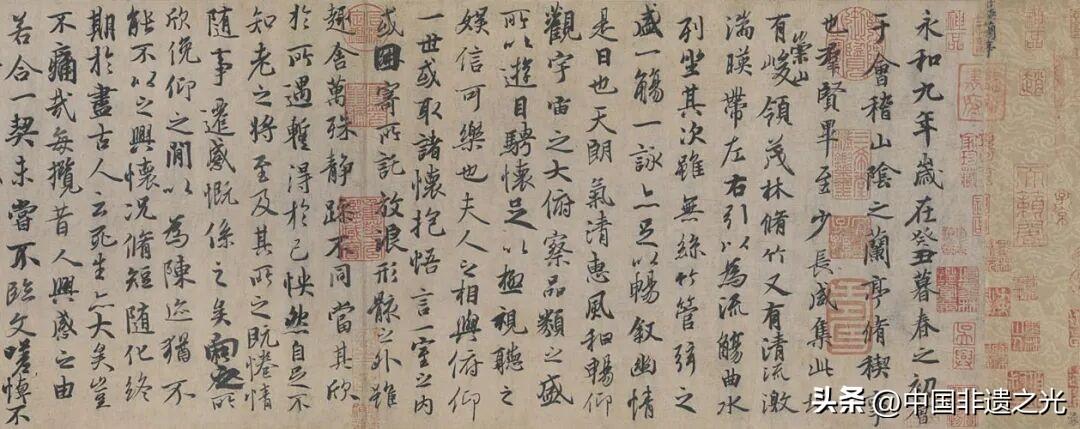 永和九年歲在癸丑暮春之初會
于會稽山陰之蘭亭脩稧事
也羣賢畢至少長咸集此地
有崇山峻領茂林脩竹又有清流激
湍暎帶左右引以為流觴曲水
列坐其次雖無絲竹管弦之
盛一觴一詠亦足以暢敘幽情
是日也天朗氣清惠風和暢仰
觀宇宙之大俯察品類之盛
所以遊目騁懷足以極視聽之
娛信可樂也夫人之相與俯仰
一世或取諸懷抱悟言一室之內
或因寄所託放浪形骸之外雖
趣舍萬殊靜躁不同當其欣
於所遇蹔得於己怏然自足不
知老之將至及其所之既惓情
隨事遷感慨係之矣向之所
欣俛仰之閒以為陳迹猶不
能不以之興懷況脩短隨化終
期於盡古人云死生亦大矣豈
不痛哉每攬昔人興感之由
若合一契未嘗不臨文嗟悼不
头条@中国非遗之光